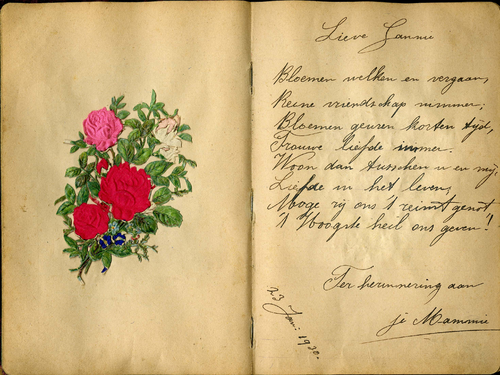 Lieve Jannie
Bloemen welken en vergaan,
Reine vriendschap nimmer;
Bloemen geuren korten tijd,
Trouwe liefde immer.
Woon dan tusschen u en mij,
Liefde in het leven,
Moge zij ons 't reinst genot
't Hoogste heil ons geven!
Ter herinnering aan
je Mammie
23 Juni 1930.